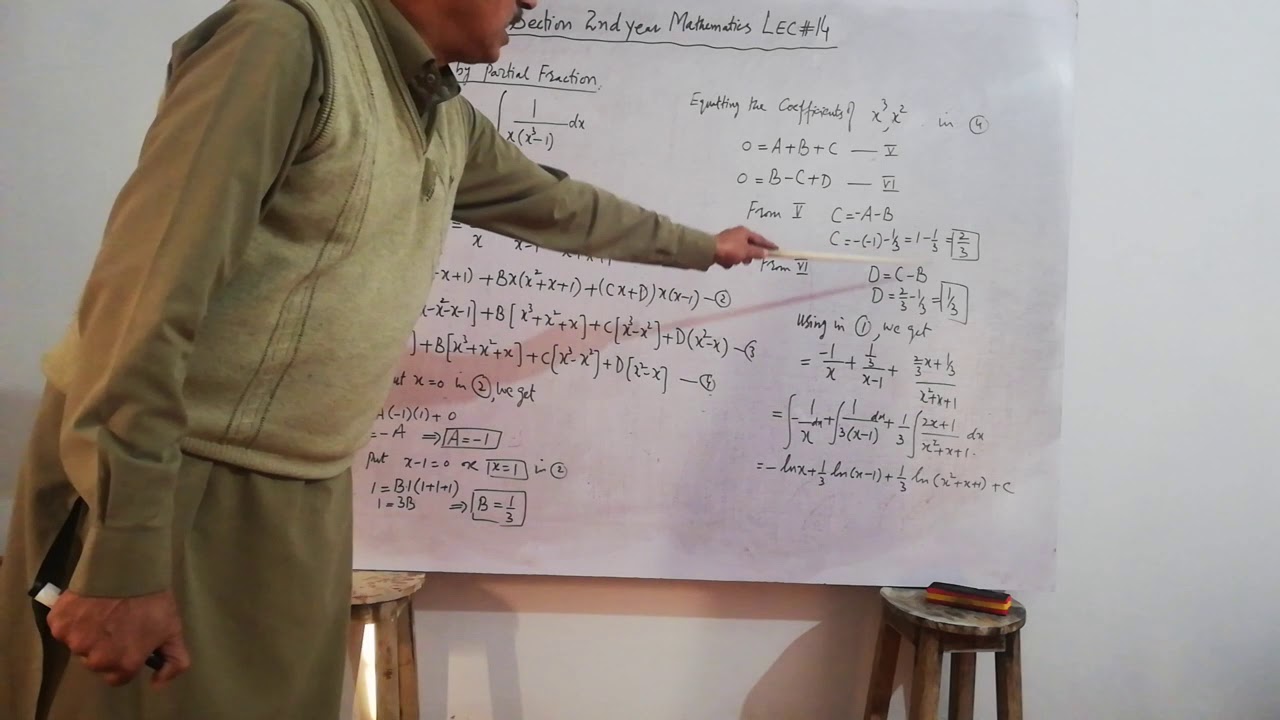 Section 2nd year Mathematics LEC#14
by Partial Fraction
∫ 1/(x(x³-1)) dx
-x+1) + Bx(x²+x+1) + (Cx+D) x(x-1) — ②
-x²-x-1] + B[x³+x²+x] + C[x³-x²] + D(x²-x) — ③
] + B[x³+x²+x] + C[x³-x²] + D[x²-x] — ④
put x=0 in ②, we get
A(-1)(1)+0
= -A ⇒ A=-1
put x-1=0 or x=1 in ②
1=B·1(1+1+1)
1=3B ⇒ B=1/3
Equatting the Coefficients of x³, x² in ④
0=A+B+C — V
0=B-C+D — VI
From V C=-A-B
C=-(-1)-1/3=1-1/3=2/3
From VI D=C-B
D=2/3-1/3=1/3
Using in ①, we get
= -1/x + (1/3)/(x-1) + (2/3x+1/3)/(x²+x+1)
= ∫-1/x dx + ∫1/(3(x-1)) dx + 1/3 ∫(2x+1)/(x²+x+1) dx
= -lnx + 1/3 ln(x-1) + 1/3 ln(x²+x+1) + C